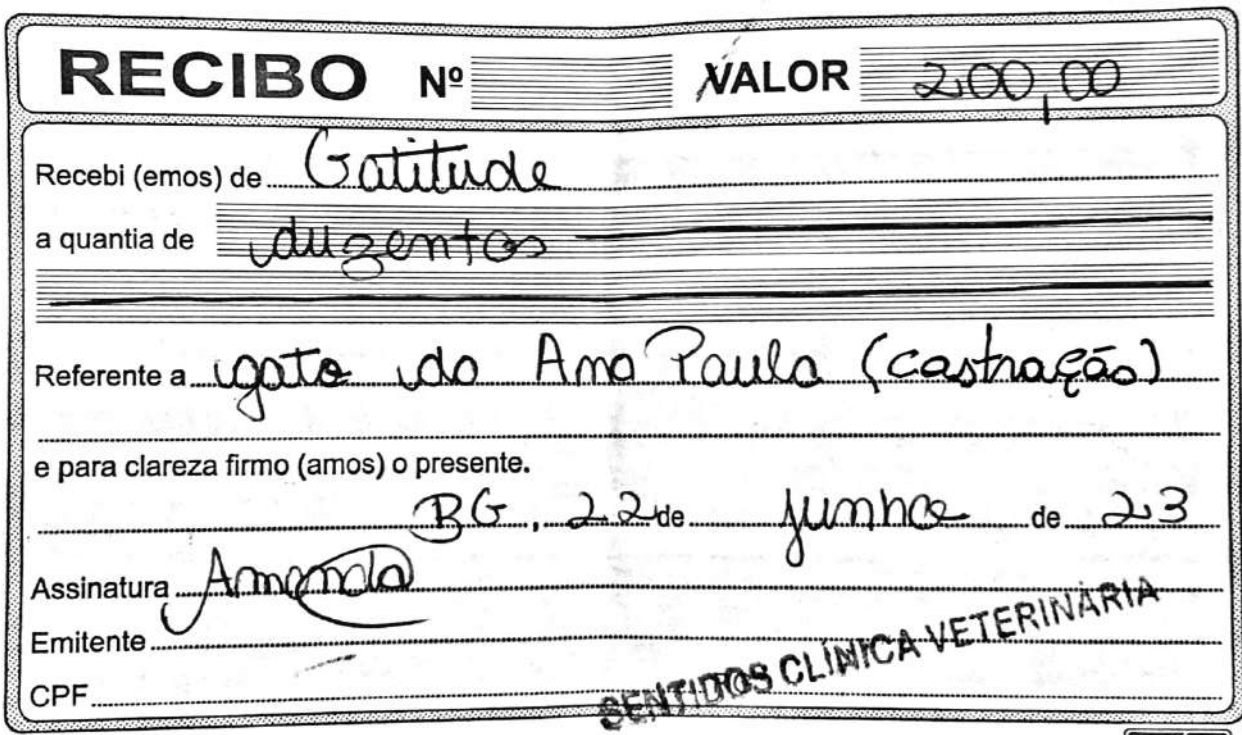 RECIBO Nº VALOR 200,00
Recebi (emos) de Gatitude
a quantia de duzentos
Referente a gato da Ana Paula (castração)
e para clareza firmo (amos) o presente.
BG, 22 de junho de 23
Assinatura Amanda
Emitente
CPF
SENTIDOS CLÍNICA VETERINÁRIA